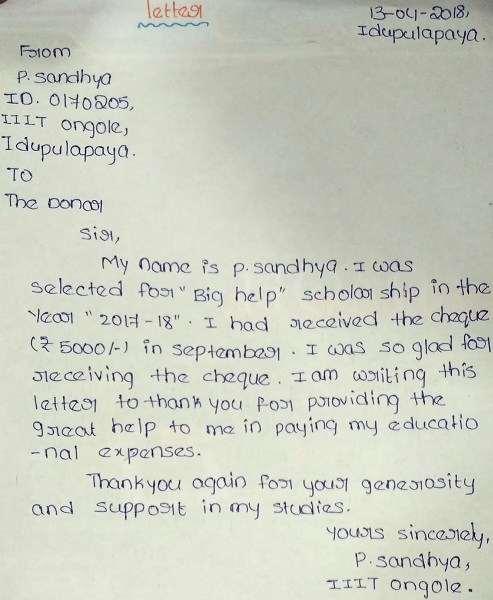 letter
13-04-2018,
Idupulapaya.
From
P. sandhya
ID. 0170205,
IIIT ongole,
Idupulapaya.
TO
The Donor
Sir,
My name is p. sandhya. I was
selected for "Big help" scholar ship in the
Year "2017-18". I had received the cheque
(₹ 5000/-) in september. I was so glad for
receiving the cheque. I am writing this
letter to thank you for providing the
great help to me in paying my educatio
-nal expenses.
Thankyou again for your generosity
and support in my studies.
yours sincerely,
P. sandhya,
IIIT ongole.